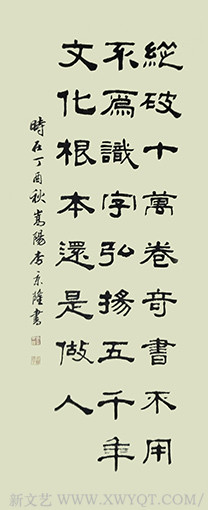 縱破十萬卷奇書不用
不爲識字弘揚五千年
文化根本還是做人
時在丁酉秋嵩陽李京隆書
新文艺（WWW.XWYQT.COM）